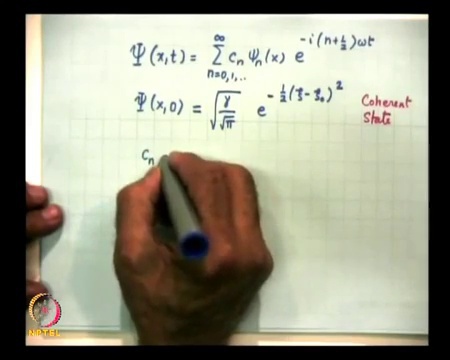 Ψ(x,t) = ∑_{n=0,1,..}^{∞} c_n ψ_n(x) e^{-i(n+1/2)ωt}
Ψ(x,0) = √(γ/√π) e^{-1/2(ξ-ξ₀)²} Coherent State
c_n
NPTEL